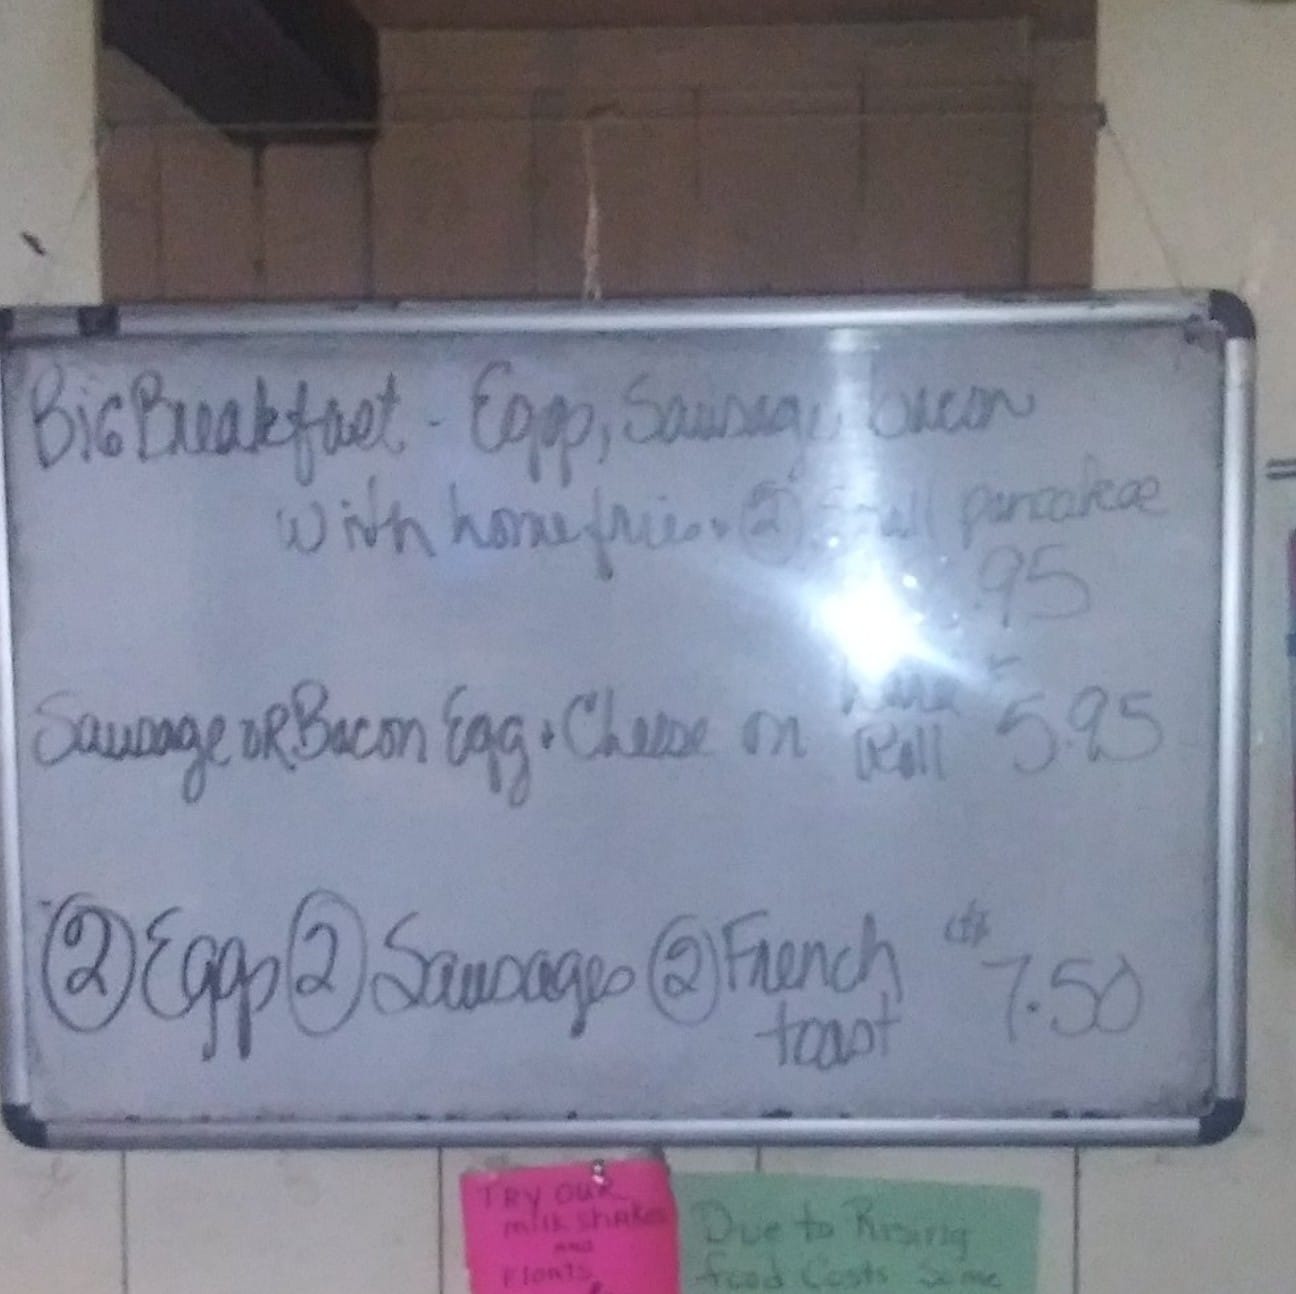 BiG Breakfast - Eggs, Sausage, bacon
with home fries + ② Small pancakes
.95
Sausage OR Bacon Egg + Cheese on Hard Roll 5.95
② Eggs ② Sausages ② French toast $7.50
TRY OUR
milk shakes
AND
Floats
Due to Rising
food Costs Some